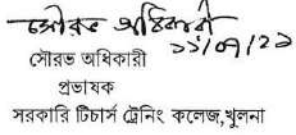 সৌরভ অধিকারী
১১/০৭/২১
সৌরভ অধিকারী
প্রভাষক
সরকারি টিচার্স ট্রেনিং কলেজ,খুলনা